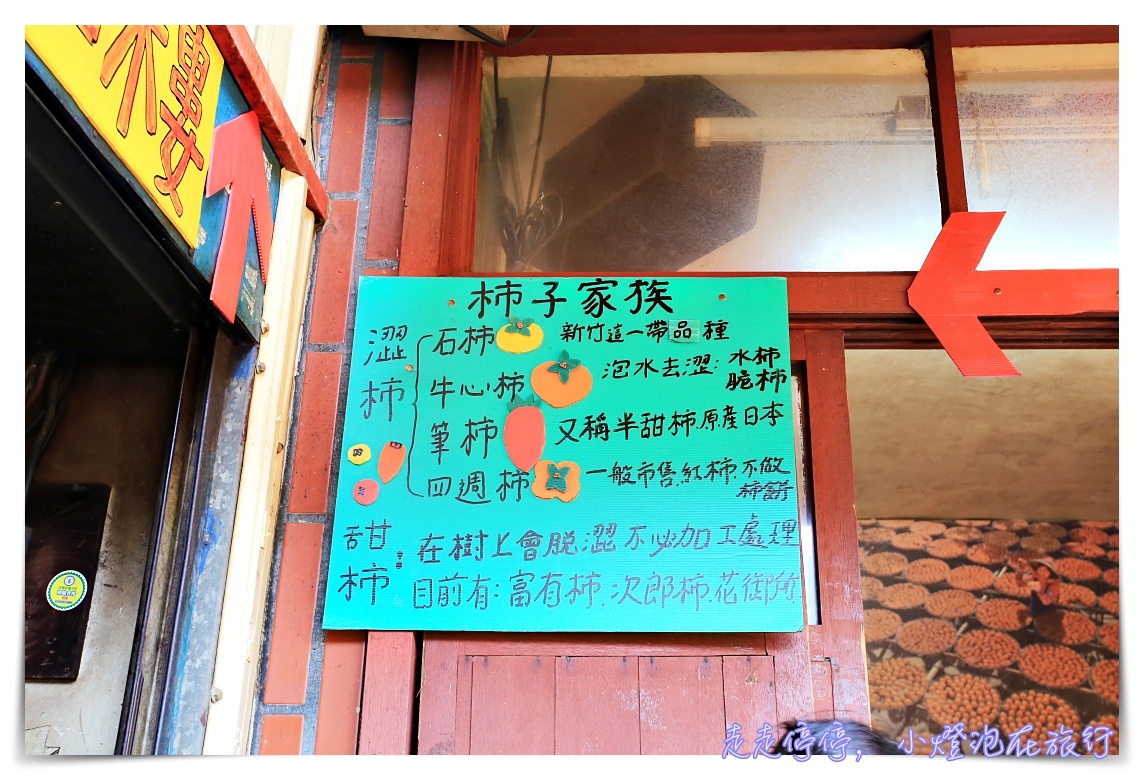 樓
柿子家族
澀柿
石柿 新竹這一帶品種
牛心柿 泡水去澀:水柿 脆柿
筆柿 又稱半甜柿.原產日本
四週柿 一般市售.紅柿.不做柿餅
甜柿:在樹上會脫澀 不必加工處理
目前有:富有柿.次郎柿.花御所
走走停停, 小燈泡在旅行